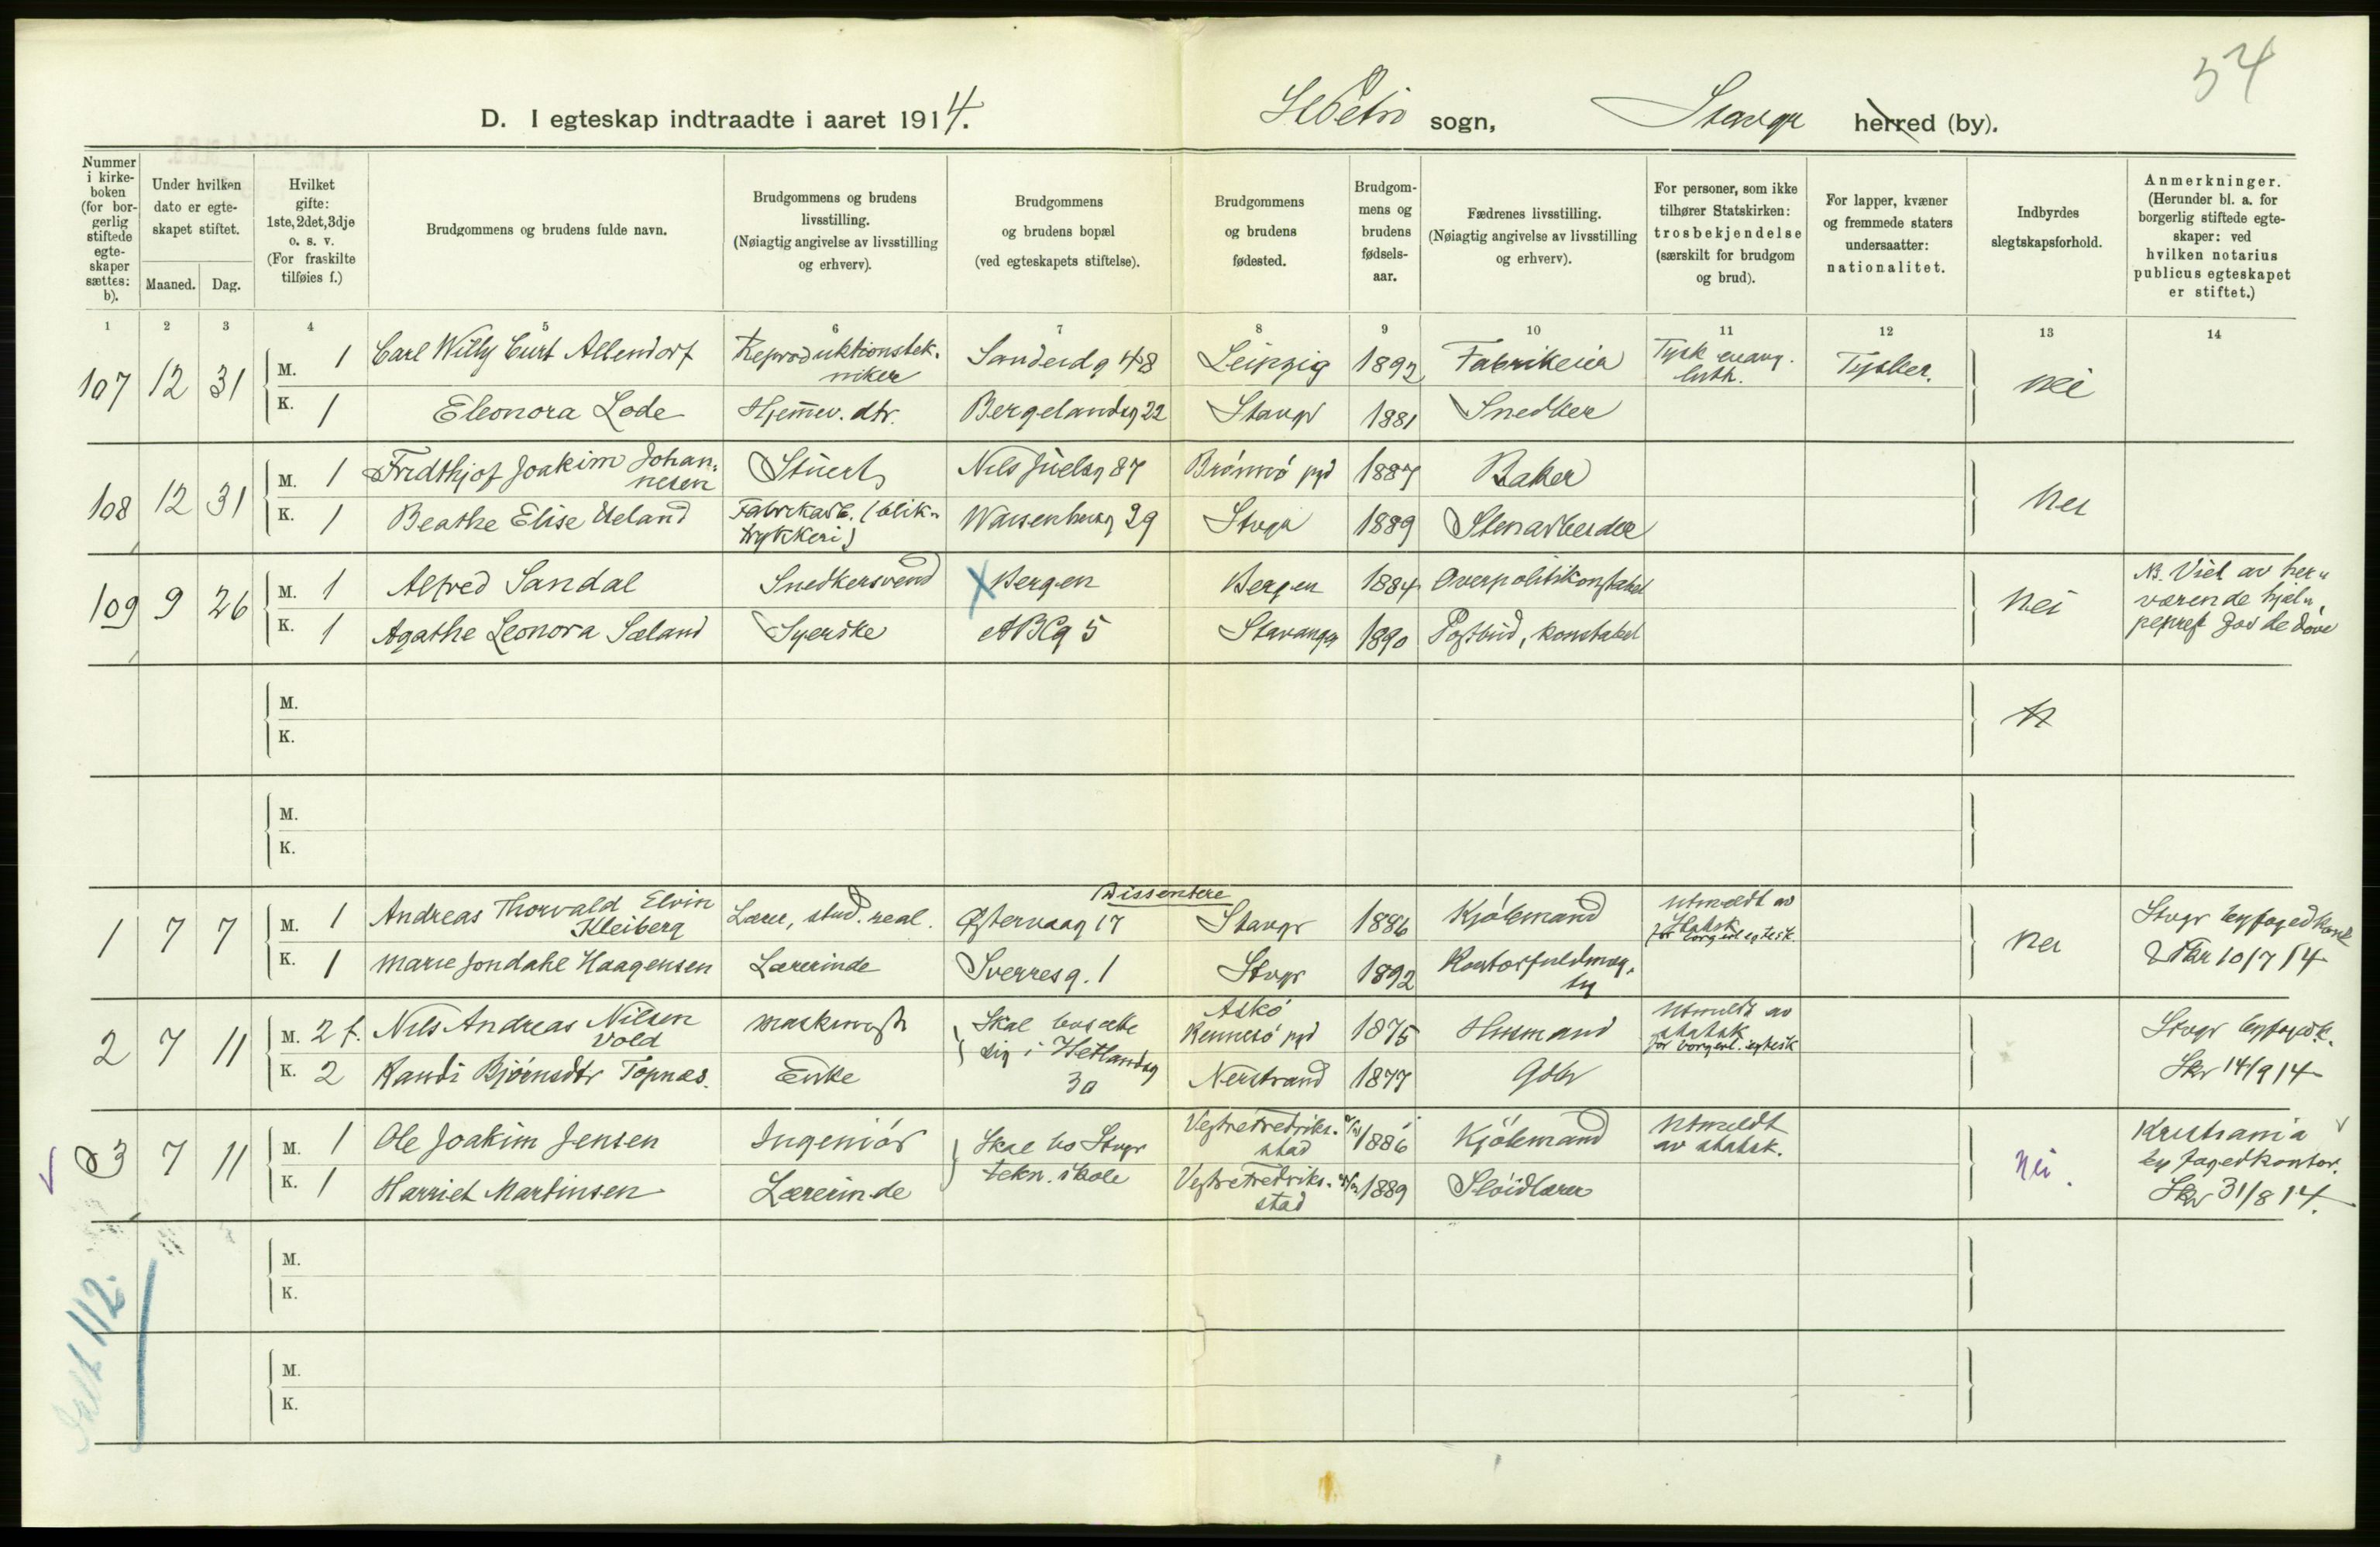 54
D. I egteskap indtraadte i aaret 1914. St Petri sogn, Stavgr herred (by).
Nummer i kirke-boken (for bor-gerlig stiftede egte-skaper sættes: b).
Under hvilken dato er egte-skapet stiftet.
Maaned. Dag.
Hvilket gifte: 1ste, 2det, 3dje o. s. v. (For fraskilte tilføies f.)
Brudgommens og brudens fulde navn.
Brudgommens og brudens livsstilling. (Nøiagtig angivelse av livsstilling og erhverv).
Brudgommens og brudens bopæl (ved egteskapets stiftelse).
Brudgommens og brudens fødested.
Brudgom-mens og brudens fødsels-aar.
Fædrenes livsstilling. (Nøiagtig angivelse av livsstilling og erhverv).
For personer, som ikke tilhører Statskirken: trosbekjendelse (særskilt for brudgom og brud).
For lapper, kvæner og fremmede staters undersaatter: nationalitet.
Indbyrdes slegtskapsforhold.
Anmerkninger. (Herunder bl. a. for borgerlig stiftede egte-skaper: ved hvilken notarius publicus egteskapet er stiftet.)
1 2 3 4 5 6 7 8 9 10 11 12 13 14
107 12 31 M. 1 Carl Willy Curt Allendorf Reproduktionstek-niker Sandeidg 48 Leipzig 1892 Fabrikeier Tysk evang. luth. Tysker. nei
K. 1 Eleonora Lode Hjemmev. dtr. Bergelandsg 22 Stavgr 1881 Snedker
108 12 31 M. 1 Fridthjof Joakim Johan-nesen Stuert Nils Juelsg 87 Brønnø pgd 1887 Baker nei
K. 1 Beathe Elise Ueland Fabrikarb. (blik-trykkeri) Waisenhusg 29 Stvgr 1889 Stenarbeider
109 9 26 M. 1 Alfred Sandal Snedkersvend X Bergen Bergen 1884 Overpolitikonstabel nei NB. Viet av her-værende hjel-pepræst for de døve
K. 1 Agathe Leonora Sæland Syerske ABCg 5 Stavanger 1890 Postbud, konstabel
M.
K.
M.
K.
Dissentere
1 7 7 M. 1 Andreas Thorvald Elvin Kleiberg Lærer, stud. real. Østervaag 17 Stavgr 1886 Kjøbmand Utmeldt av Statsk for borgerl egtesk. nei Stvgr byfogedkont Skr 10/7 14
K. 1 Marie Jondahl Haagensen Lærerinde Sverresg. 1 Stvgr 1892 Kontorfuldmæg-tig
2 7 11 M. 2 f. Nils Andreas Nilsen Vold maskinist Skal bosætte sig i Hetlandsg 30 Askø Rennesø pgd 1875 Husmand Utmeldt av statsk for borgerl. egtesk Stvgr byfogedk. Skr 14/9 14
K. 2 Randi Bjørnsdtr Topnæs. Enke Nerstrand 1877 Gbr
3 7 11 M. 1 Ole Joakim Jensen Ingeniør Skal bo Stvgr tekn. skole Vestre Fredriks-stad 1886 Kjøbmand Utmeldt av statsk. nei. Kristiania byfogedkontor. Skr 31/8 14.
K. 1 Harriet Martinsen Lærerinde Vestre Fredriks-stad 1889 Sløidlærer
M.
K.
M.
K.
Ialt 112.